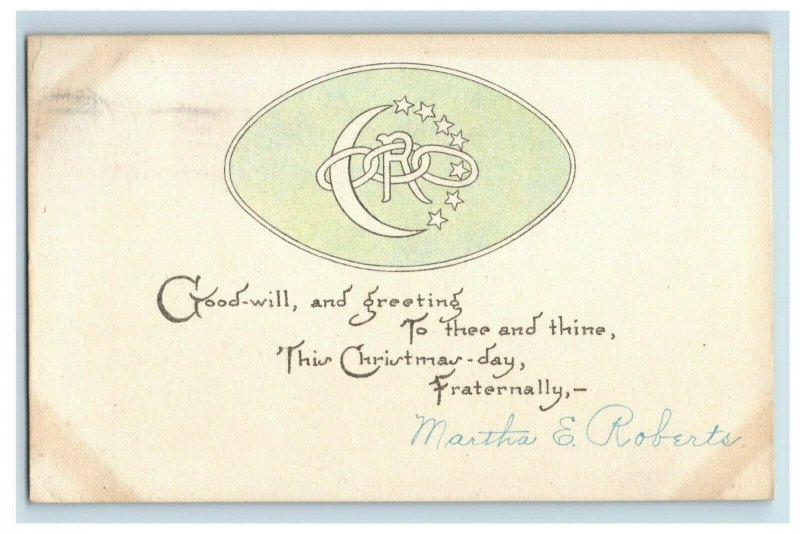 R
Good-will, and greeting
To thee and thine,
This Christmas-day,
Fraternally,-
Martha E. Roberts.